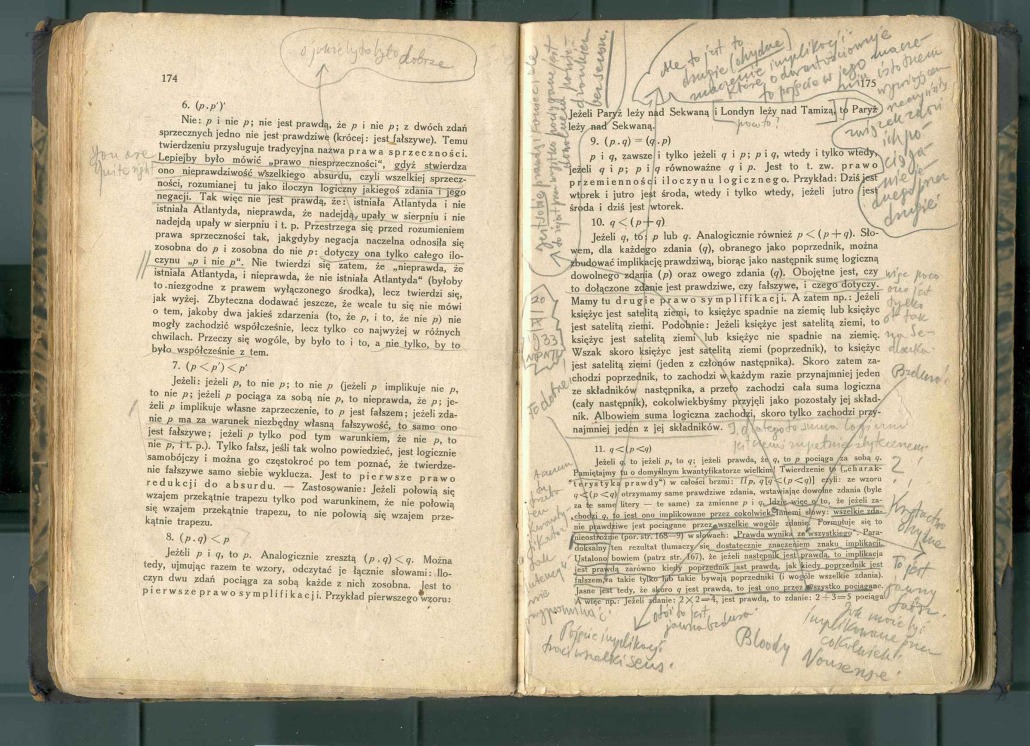 o jakie by to było dobrze
174
6. (p.p')'
Nie: p i nie p; nie jest prawdą, że p i nie p; z dwóch zdań
sprzecznych jedno nie jest prawdziwe (krócej: jest fałszywe). Temu
twierdzeniu przysługuje tradycyjna nazwa prawa sprzeczności.
Lepiejby było mówić „prawo niesprzeczności“, gdyż stwierdza
ono nieprawdziwość wszelkiego absurdu, czyli wszelkiej sprzecz-
ności, rozumianej tu jako iloczyn logiczny jakiegoś zdania i jego
negacji. Tak więc nie jest prawdą, że: istniała Atlantyda i nie
istniała Atlantyda, nieprawda, że nadejdą upały w sierpniu i nie
nadejdą upały w sierpniu i t. p. Przestrzega się przed rozumieniem
prawa sprzeczności tak, jakgdyby negacja naczelna odnosiła się
zosobna do p i zosobna do nie p: dotyczy ona tylko całego ilo-
czynu „p i nie p“. Nie twierdzi się zatem, że „nieprawda, że
istniała Atlantyda, i nieprawda, że nie istniała Atlantyda“ (byłoby
to niezgodne z prawem wyłączonego środka), lecz twierdzi się,
jak wyżej. Zbyteczna dodawać jeszcze, że wcale tu się nie mówi
o tem, jakoby dwa jakieś zdarzenia (to, że p, i to, że nie p) nie
mogły zachodzić współcześnie, lecz tylko co najwyżej w różnych
chwilach. Przeczy się wogóle, by było to i to, a nie tylko, by to
było współcześnie z tem.
7. (p < p') < p'
Jeżeli: jeżeli p, to nie p; to nie p (jeżeli p implikuje nie p,
to nie p; jeżeli p pociąga za sobą nie p, to nieprawda, że p; je-
żeli p implikuje własne zaprzeczenie, to p jest fałszem; jeżeli zda-
nie p ma za warunek niezbędny własną fałszywość, to samo ono
jest fałszywe; jeżeli p tylko pod tym warunkiem, że nie p, to
nie p, i t. p.). Tylko fałsz, jeśli tak wolno powiedzieć, jest logicznie
samobójczy i można go częstokroć po tem poznać, że twierdze-
nie fałszywe samo siebie wyklucza. Jest to pierwsze prawo
redukcji do absurdu. — Zastosowanie: Jeżeli połowią się
wzajem przekątnie trapezu tylko pod warunkiem, że nie połowią
się wzajem przekątnie trapezu, to nie połowią się wzajem prze-
kątnie trapezu.
8. (p.q) < p
Jeżeli p i q, to p. Analogicznie zresztą (p.q) < q. Można
tedy, ujmując razem te wzory, odczytać je łącznie słowami: Ilo-
czyn dwu zdań pociąga za sobą każde z nich zosobna. Jest to
pierwsze prawo symplifikacji. Przykład pierwszego wzoru:
you are
quite right
175
Jeżeli Paryż leży nad Sekwaną i Londyn leży nad Tamizą, to Paryż
leży nad Sekwaną.
poco to?
9. (p.q) = (q.p)
p i q, zawsze i tylko jeżeli q i p; p i q, wtedy i tylko wtedy,
jeżeli q i p; p i q równoważne q i p. Jest to t. zw. prawo
przemienności iloczynu logicznego. Przykład: Dziś jest
wtorek i jutro jest środa, wtedy i tylko wtedy, jeżeli jutro jest
środa i dziś jest wtorek.
10. q < (p + q)
Jeżeli q, to: p lub q. Analogicznie również p < (p + q). Sło-
wem, dla każdego zdania (q), obranego jako poprzednik, można
zbudować implikację prawdziwą, biorąc jako następnik sumę logiczną
dowolnego zdania (p) oraz owego zdania (q). Obojętne jest, czy
to dołączone zdanie jest prawdziwe, czy fałszywe, i czego dotyczy.
Mamy tu drugie prawo symplifikacji. A zatem np.: Jeżeli
księżyc jest satelitą ziemi, to księżyc spadnie na ziemię lub księżyc
jest satelitą ziemi. Podobnie: Jeżeli księżyc jest satelitą ziemi, to
księżyc jest satelitą ziemi lub księżyc nie spadnie na ziemię.
Wszak skoro księżyc jest satelitą ziemi (poprzednik), to księżyc
jest satelitą ziemi (jeden z członów następnika). Skoro zatem za-
chodzi poprzednik, to zachodzi w każdym razie przynajmniej jeden
ze składników następnika, a przeto zachodzi cała suma logiczna
(cały następnik), cokolwiekbyśmy przyjęli jako pozostały jej skład-
nik. Albowiem suma logiczna zachodzi, skoro tylko zachodzi przy-
najmniej jeden z jej składników.
11. q < (p < q)
Jeżeli q, to jeżeli p, to q; jeżeli prawda, że q, to p pociąga za sobą q.
Pamiętajmy tu o domyślnym kwantyfikatorze wielkim! Twierdzenie to („charak-
terystyka prawdy“) w całości brzmi: Πp, q[q < (p < q)] czyli: ze wzoru
q < (p < q) otrzymamy same prawdziwe zdania, wstawiając dowolne zdania (byle
za te same litery — te same) za zmienne p i q. Idzie więc o to, że jeżeli za-
chodzi q, to jest ono implikowane przez cokolwiek. Innemi słowy: wszelkie zda-
nie prawdziwe jest pociągane przez wszelkie wogóle zdanie. Formułuje się to
nieostrożnie (por. str. 168—9) w słowach: „Prawda wynika ze wszystkiego“. Para-
doksalny ten rezultat tłumaczy się dostatecznie znaczeniem znaku implikacji.
Ustalono bowiem (patrz str. 167), że jeżeli następnik jest prawdą, to implikacja
jest prawdą zarówno kiedy poprzednik jest prawdą, jak kiedy poprzednik jest
fałszem, a takie tylko lub takie bywają poprzedniki (i wogóle wszelkie zdania).
Jasne jest tedy, że skoro q jest prawdą, to jest ono przez wszystko pociągane.
A więc np.: Jeżeli zdanie: 2×2=4, jest prawdą, to zdanie: 2+3=5 pociąga
To jest
jawny
Pojęcie implikacji
traci wszelki sens.
otóż to jest
jawna bzdura
Jak może być
implikowane przez
cokolwiek!
Bloody
Nonsense!